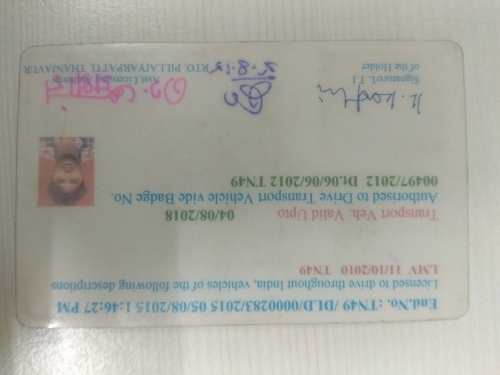 End.No. : TN49 /DLD/0000283/2015 05/08/2015 1:46:27 PM
Licensed to drive throughout India, vehicles of the following descriptions
LMV 11/10/2010 TN49
Transport Veh. Valid Upto 04/08/2018
Authorised to Drive Transport Vehicle vide Badge No.
00497/2012 Dt.06/06/2012 TN49
Signature/L T I
of the Holder
Asst Licensing Authority
RTO, PILLAIYARPATTI, THANJAVUR